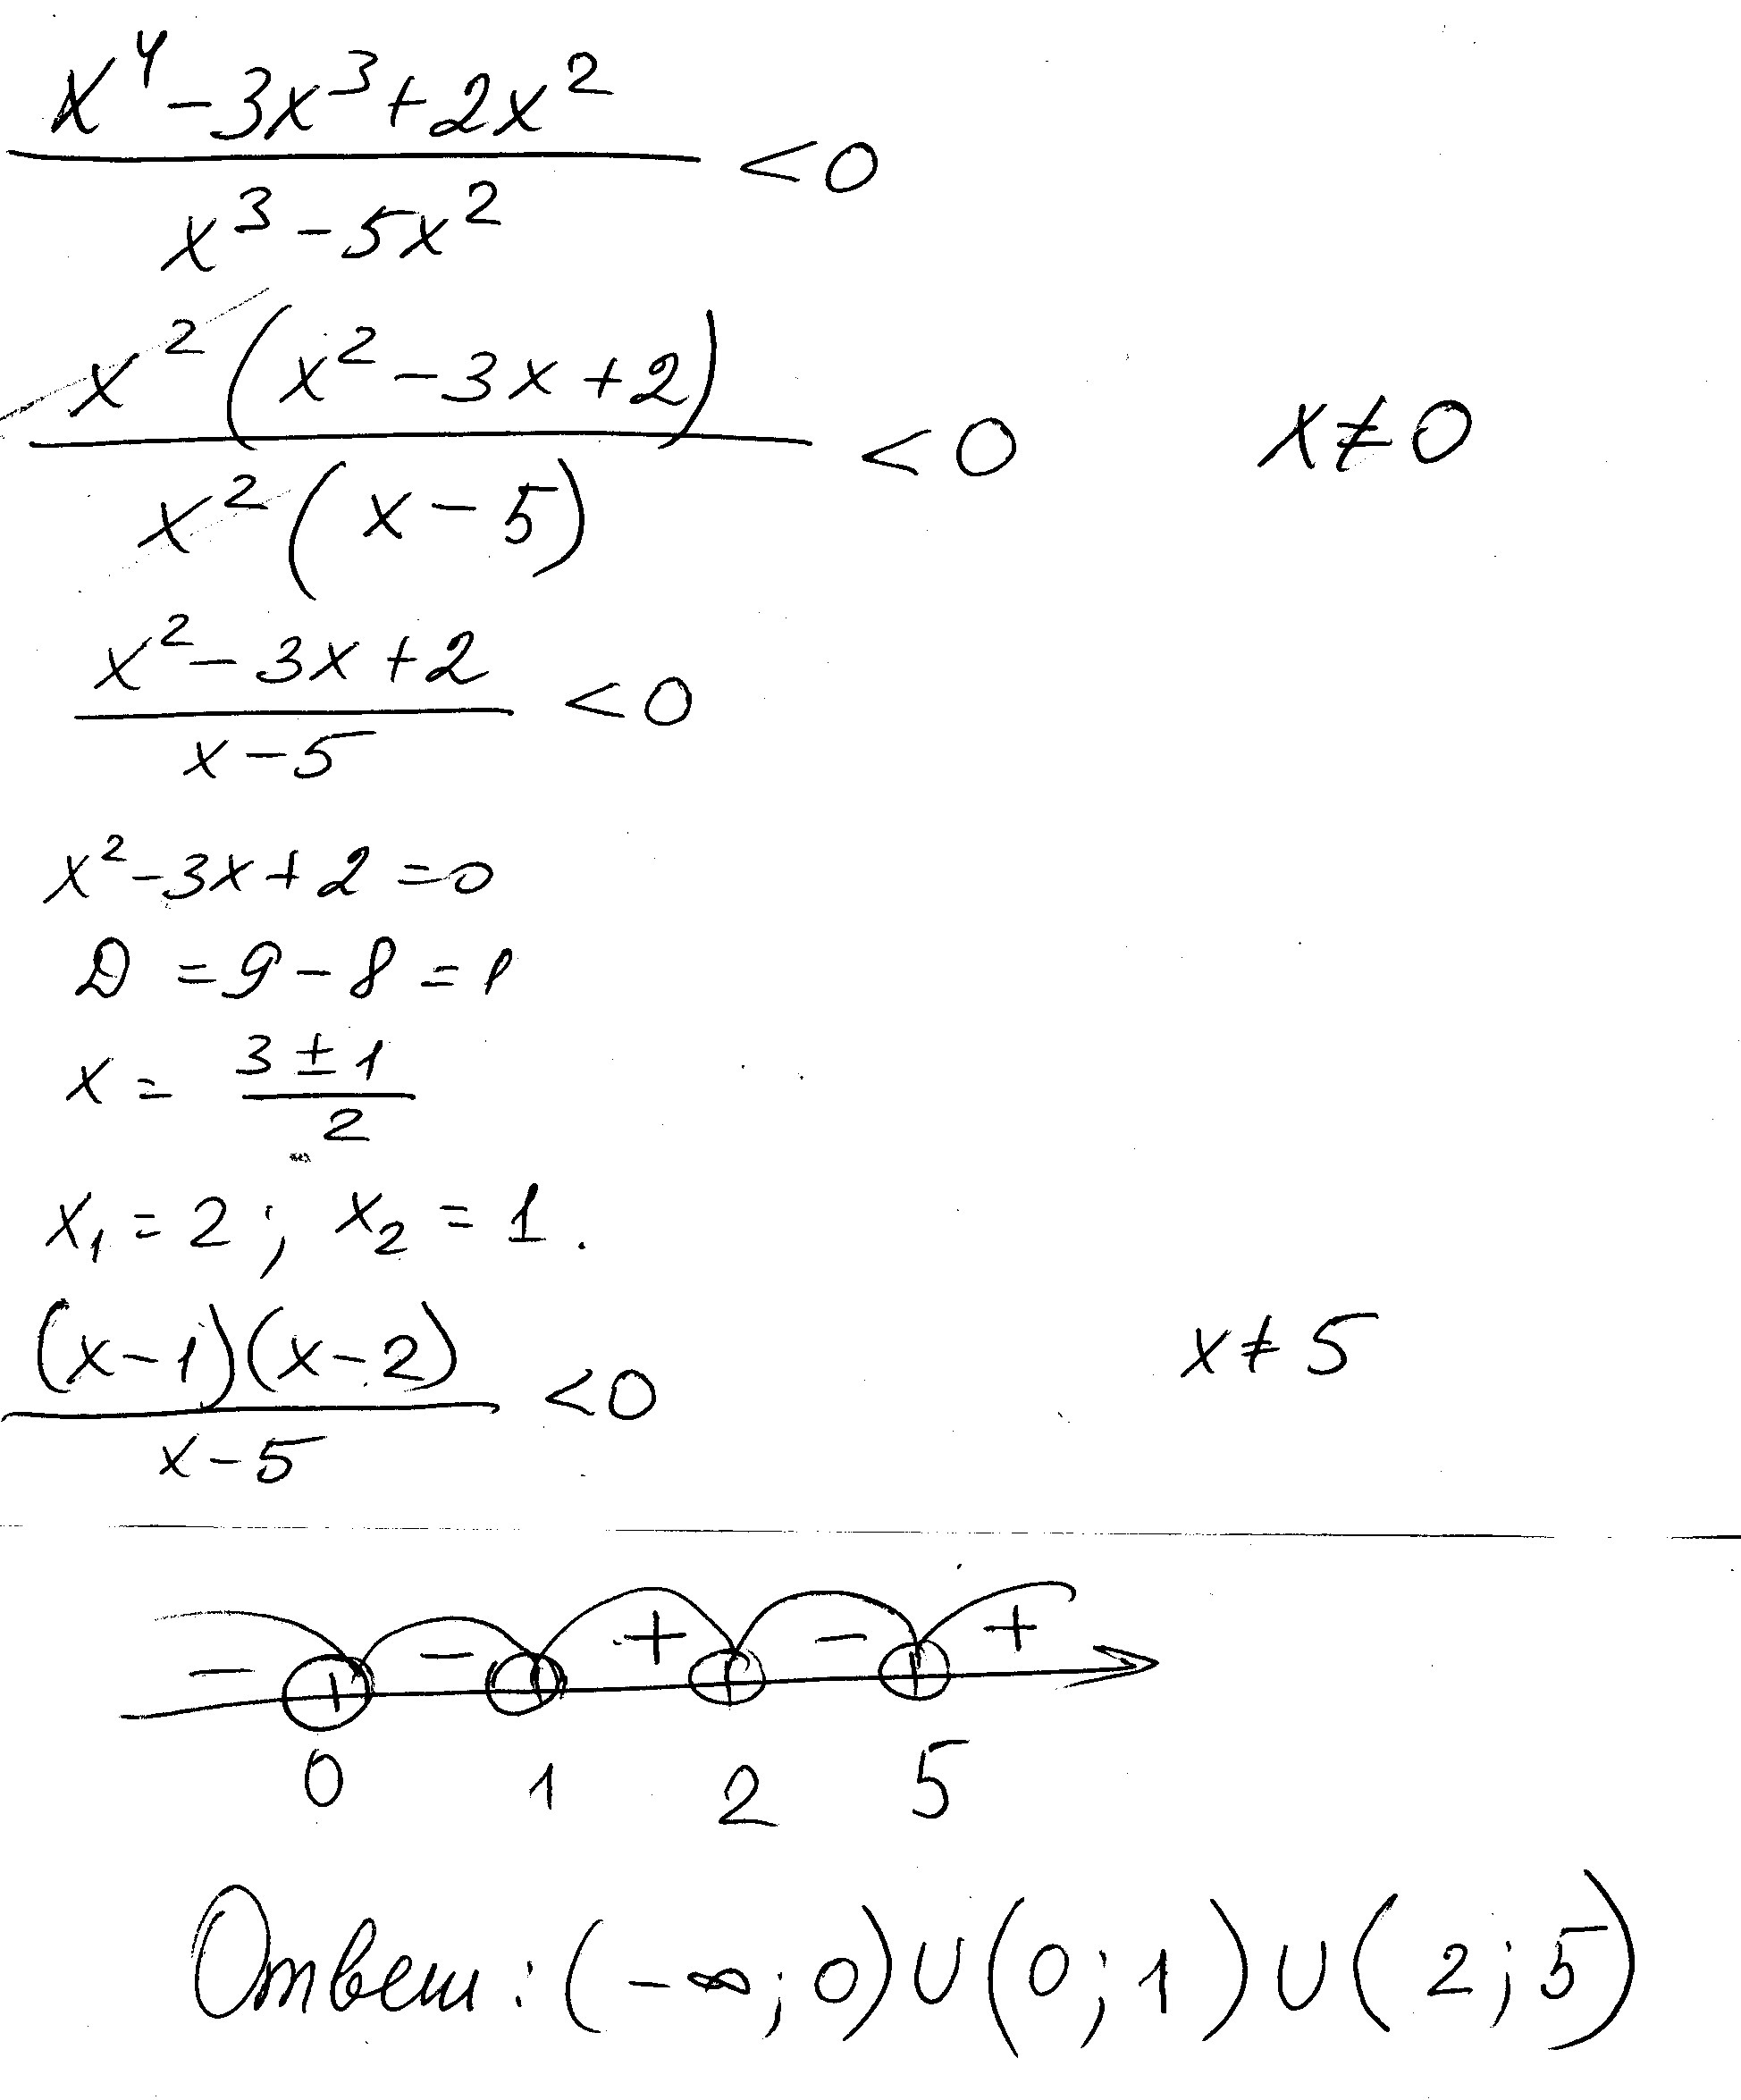 x⁴ - 3x³ + 2x² / x³ - 5x² < 0
x² (x² - 3x + 2) / x² (x - 5) < 0 x ≠ 0
x² - 3x + 2 / x - 5 < 0
x² - 3x + 2 = 0
D = 9 - 8 = 1
x = 3 ± 1 / 2
x₁ = 2 ; x₂ = 1 .
(x - 1)(x - 2) / x - 5 < 0 x ≠ 5
- - + - +
0 1 2 5
Ответ : (-∞; 0) ∪ (0; 1) ∪ (2; 5)